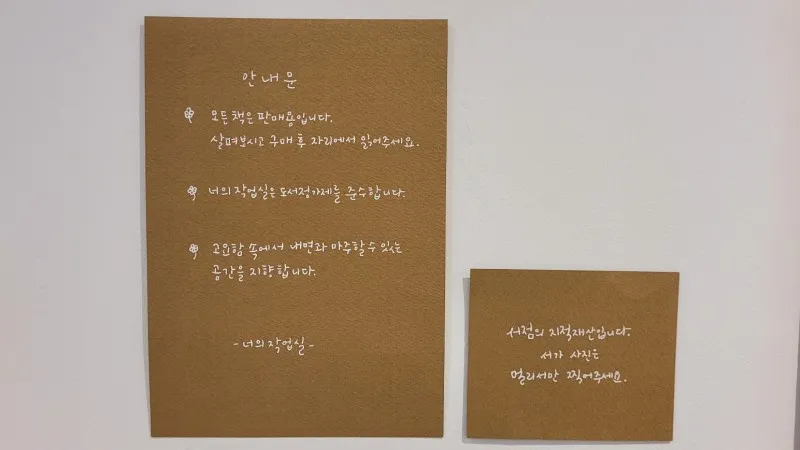 안내문
모든 책은 판매용입니다.
살펴보시고 구매 후 자리에서 읽어주세요.
너의 작업실은 도서정가제를 준수합니다.
고요함 속에서 내면과 마주할 수 있는
공간을 지향합니다.
- 너의 작업실 -
서점의 지적재산입니다.
서가 사진은
멀리서만 찍어주세요.